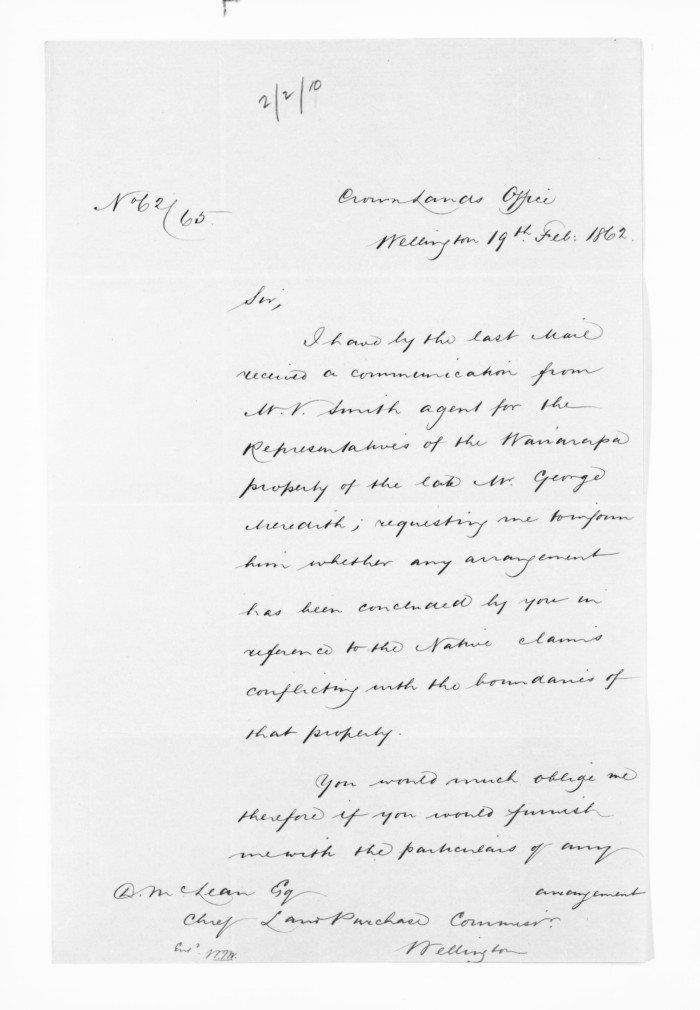 2/2/10
No 62/65.
Crown Lands Office
Wellington 19th. Feb: 1862.
Sir,
I have by the last Mail
received a communication from
Mr. V. Smith agent for the
Representatives of the Wairarapa
property of the late Mr. George
Meredith; requesting me to inform
him whether any arrangement
has been concluded by you in
reference to the Native claims
conflicting with the boundaries of
that property.
You would much oblige me
therefore if you would furnish
me with the particulars of any
arrangement
D. McLean Esq
Chief Land Purchase Commissr.
Wellington